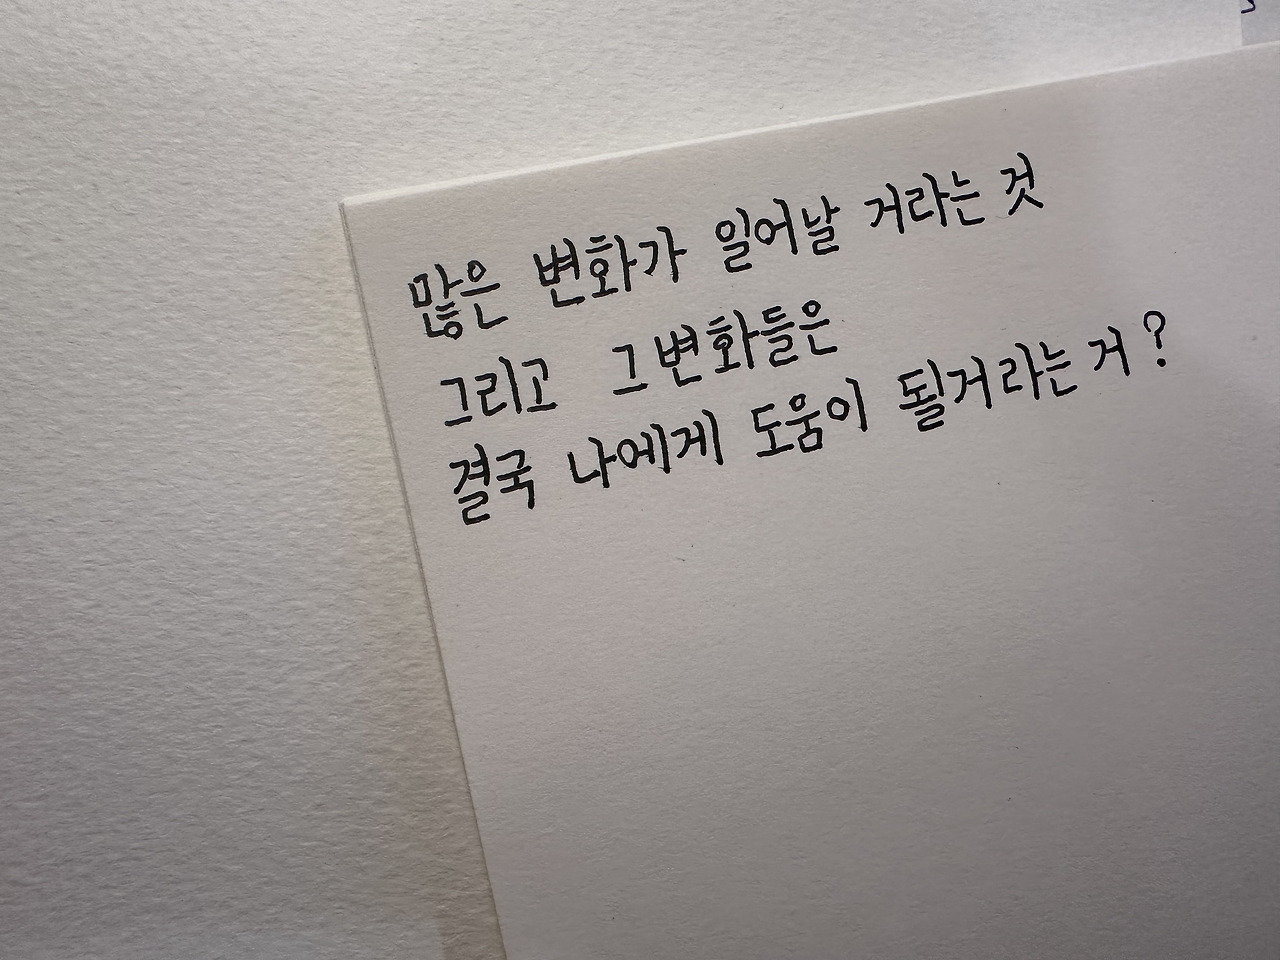 많은 변화가 일어날 거라는 것
그리고 그 변화들은
결국 나에게 도움이 될거라는 거?